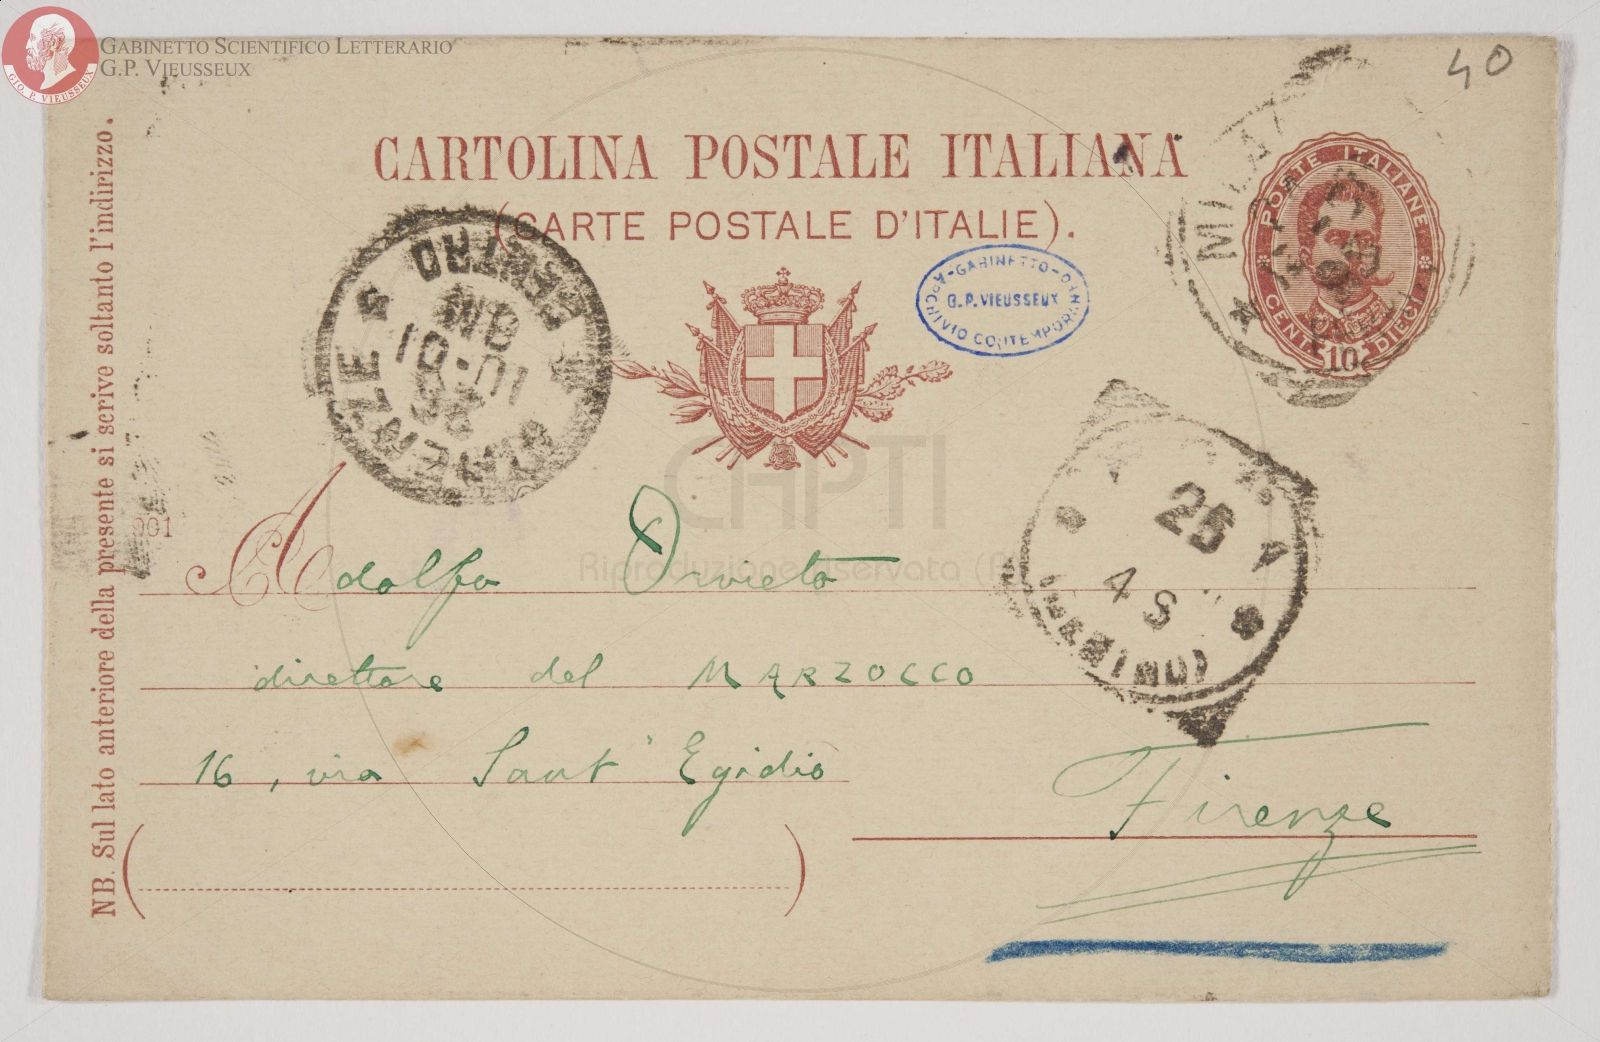 GABINETTO SCIENTIFICO LETTERARIO
G.P. VIEUSSEUX
GIO. P. VIEUSSEUX
40
CARTOLINA POSTALE ITALIANA
(CARTE POSTALE D'ITALIE).
POSTE ITALIANE
CENT. 10 DIECI
GABINETTO
G.P. VIEUSSEUX
ARCHIVIO CONTEMPORANEO
FIRENZE
10
25
4 S
001
Adolfo Orvieto
direttore del MARZOCCO
16, via Sant' Egidio
Firenze
NB. Sul lato anteriore della presente si scrive soltanto l'indirizzo.